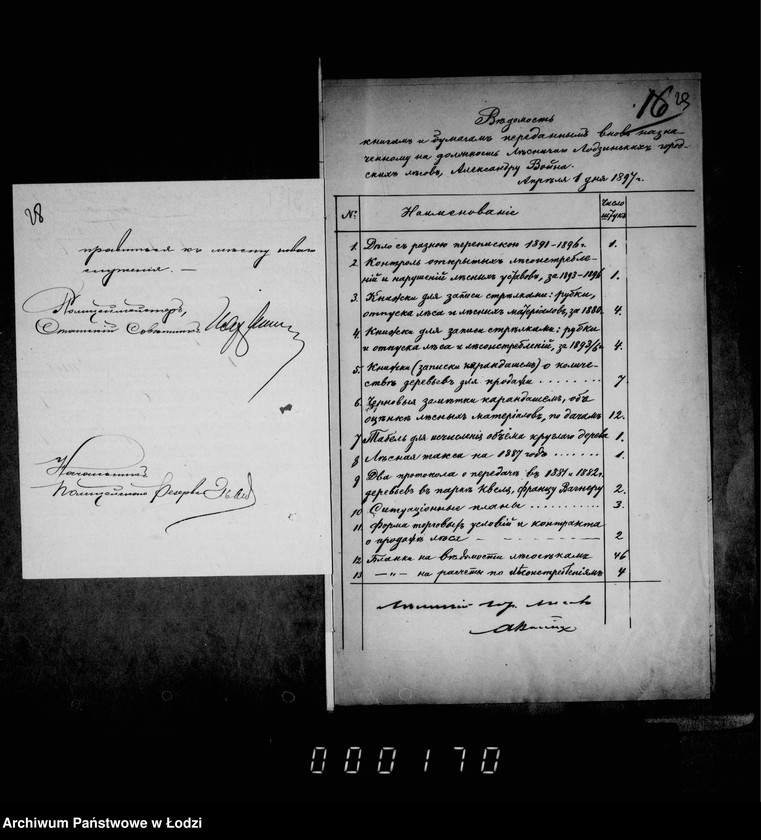 28
правиться къ мѣсту новаго
служенія. —
Полиціймейстеръ,
Статскій Совѣтникъ
Начальникъ
Полицейскаго
16
29
Вѣдомость
книгамъ и бумагамъ переданнымъ вновь назна-
ченному на должность Лѣсничаго Лодзинскихъ город-
скихъ лѣсовъ, Александру Война.
Апрѣля 1 дня 1897 г.
№ Наименованіе Число штукъ
1. Дѣло съ разною перепискою 1891–1896 г. 1.
2. Контроль открытыхъ лѣсоистребле-
ній и нарушеній лѣсныхъ уставовъ, за 1893–1896 1.
3. Книжки для записи стрѣлками: рубки,
отпуска лѣса и лѣсныхъ матеріаловъ, за 1880. 4.
4. Книжки для записи стрѣлками: рубки
и отпуска лѣса и лѣсоистребленій, за 4
5. Книжки (записки карандашемъ) о количе-
ствѣ деревьевъ для продажи . . . . . . . . 7
6. Черновыя замѣтки карандашемъ, объ
оцѣнкѣ лѣсныхъ матеріаловъ, по дачамъ 12.
7 Табель для исчисленія объёма круглаго дерева 1.
8 Лѣсная такса на 1887 годъ . . . . . . . 1.
9 Два протокола о передачѣ въ 1881 и 1882 г.
деревьевъ въ паркъ Квеля, Францу Вагнеру 2.
10 Ситуаціонные планы . . . . . . . . 3.
11. Форма торговыхъ условій и контракта
о продажѣ лѣса — — — — — — — 2
12 Бланки на вѣдомости лѣсосѣкамъ 46
13 — „ — на расчеты по лѣсоистребленіямъ 4
Лѣсничій Гор. Лѣсовъ
АВойна
000170
Archiwum Państwowe w Łodzi